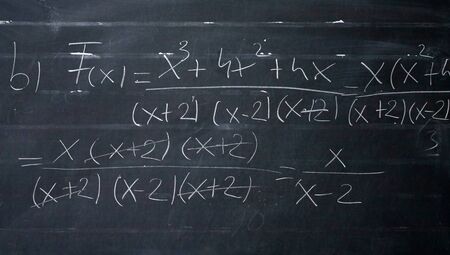 b) F(x) = x³ + 4x² + 4x / (x+2) (x-2) (x+2) = x(x²+4 / (x+2)(x-2)
= x (x+2) (x+2) / (x+2) (x-2) (x+2) = x / x-2